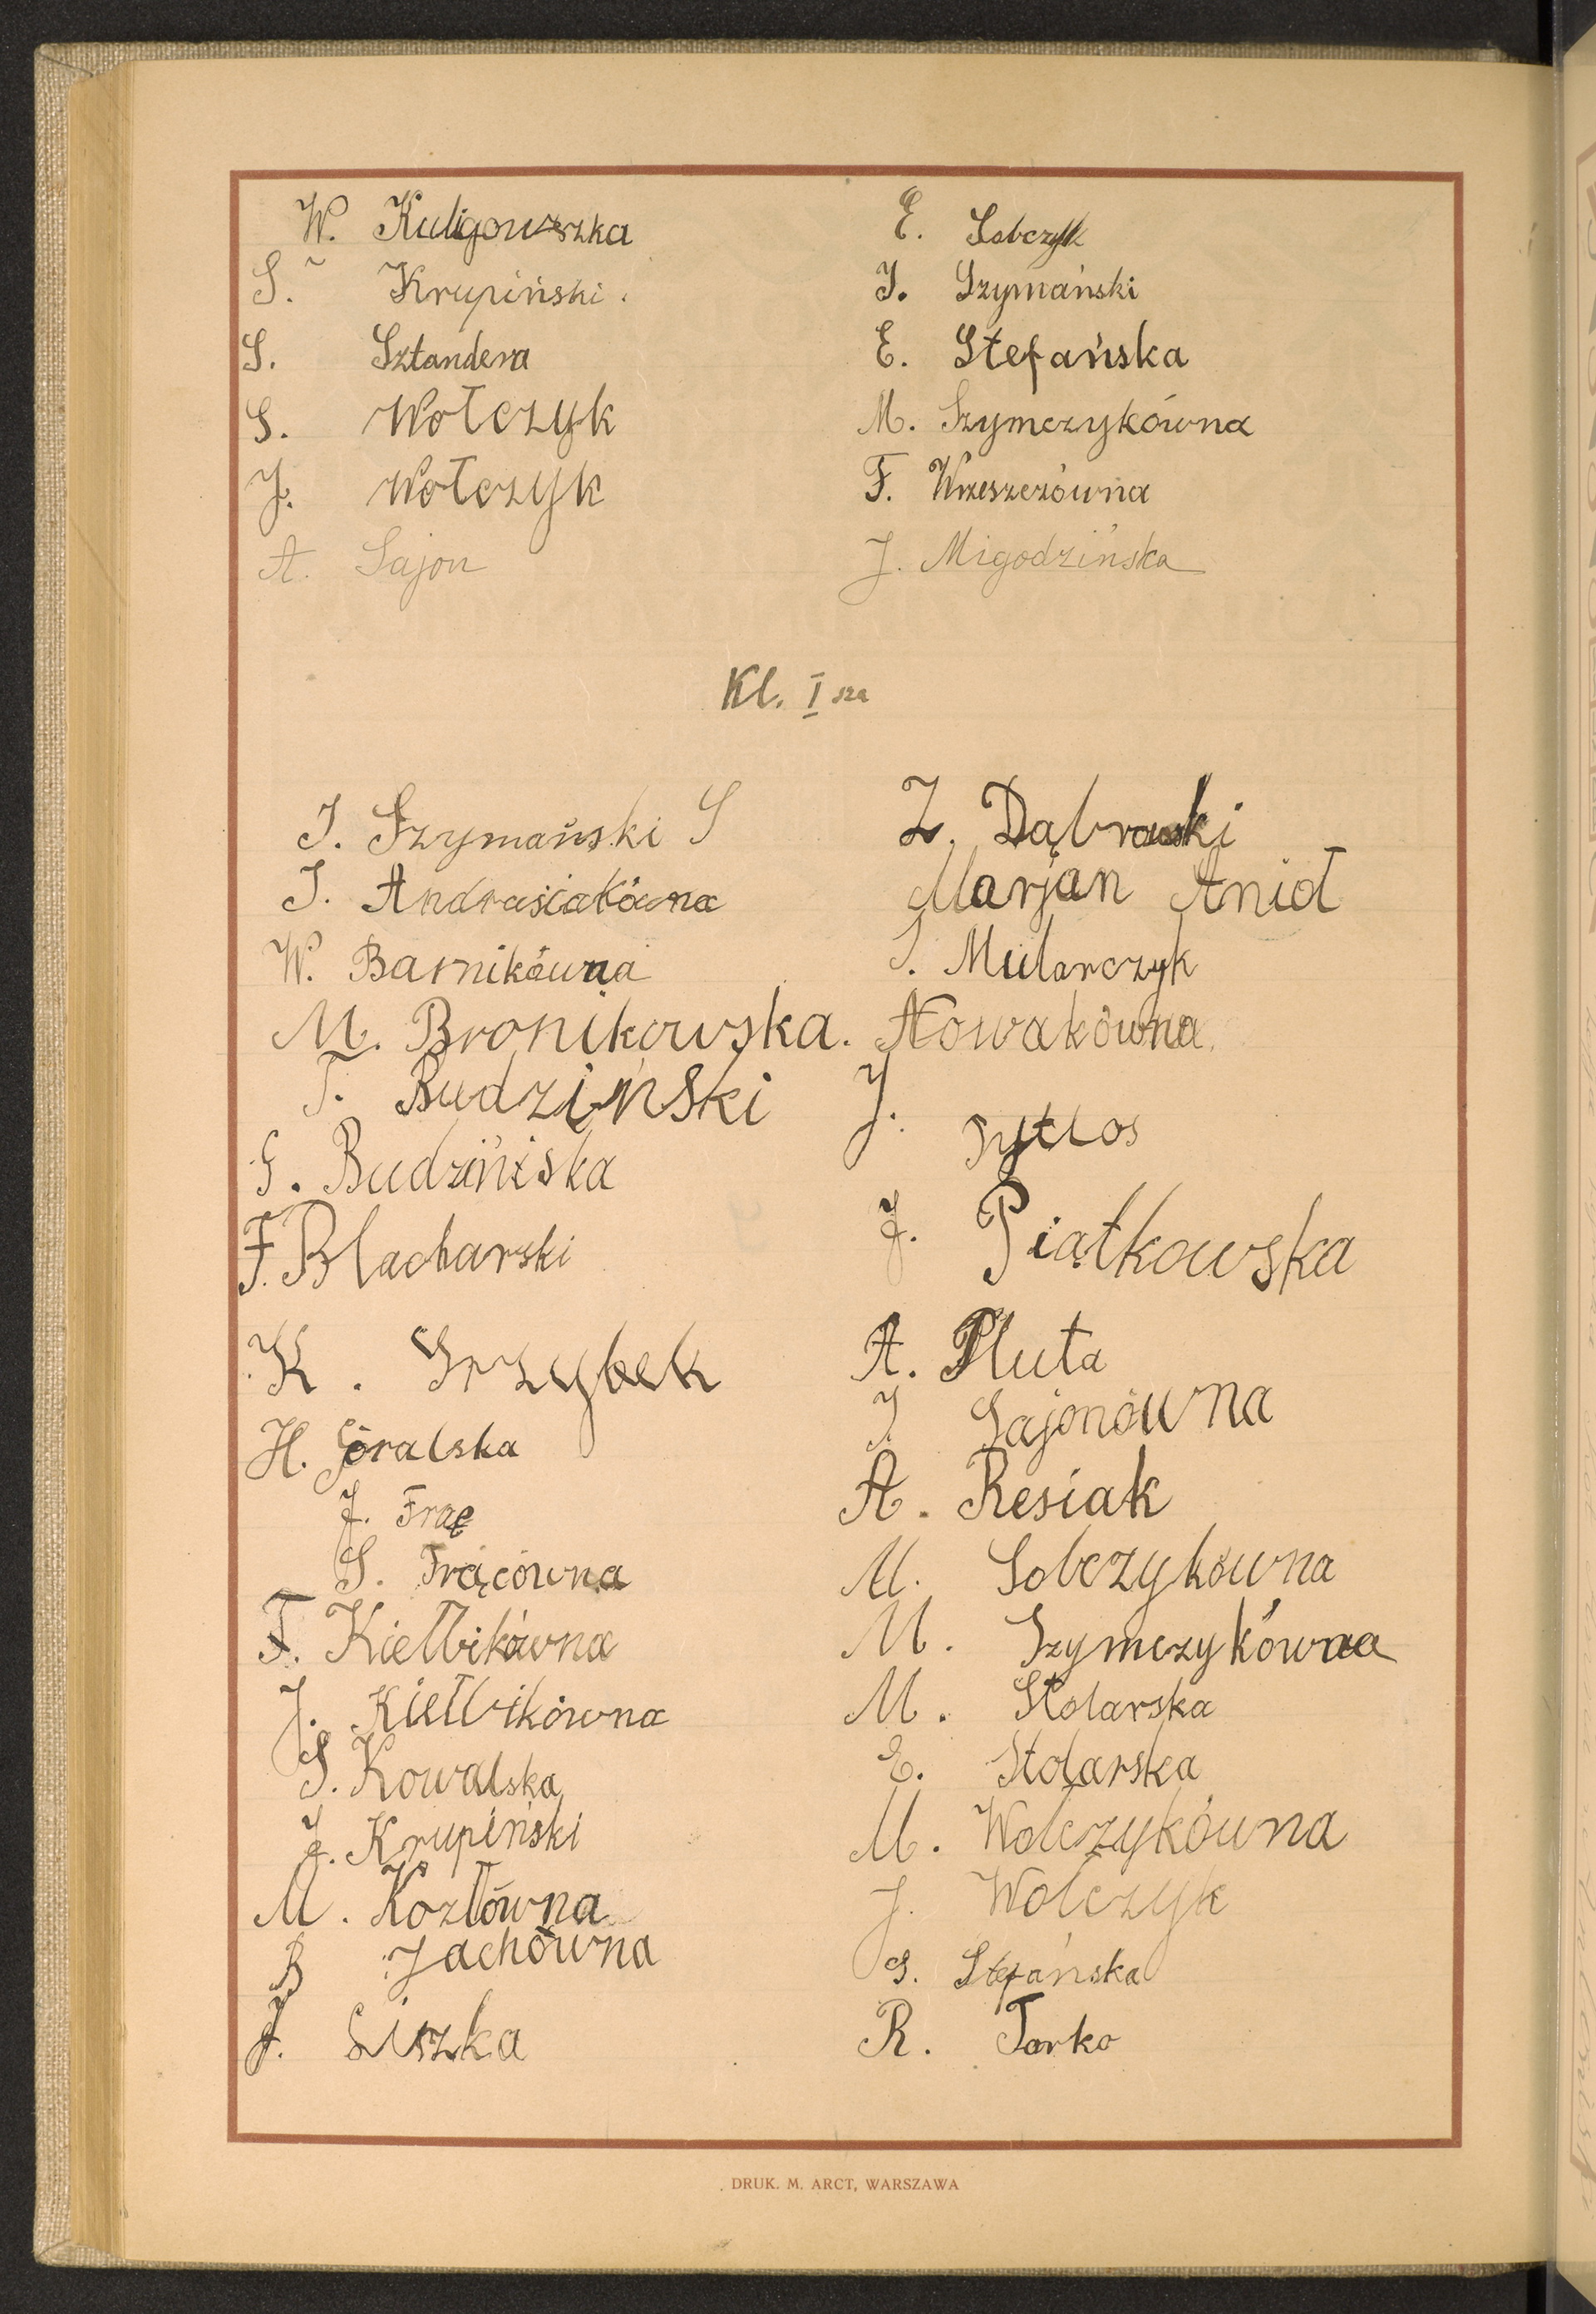 W. Kuligowszka
S. Krupiński.
S. Sztandera
S. Wołczyk
J. Wołczyk
A. Sajon
E. Sobczyk
J. Szymański
E. Stefańska
M. Szymczykówna
F. Wrzeszczówna
J. Migodzińska
Kl. I sza
J. Szymański S
J. Andrasiakówna
W. Barnikówna
M. Bronikowska.
T. Budziński
G. Budzińska
F. Blacharski
K. Grzybek
H. Góralska
J. Frąc
S. Frącówna
F. Kiełbikówna
J. Kiełbikówna
S. Kowalska
J. Krupiński
M. Kozłówna
B Jachówna
J. Liszka
Z. Dąbrowski
Marjan Anioł
S. Mularczyk
Nowakówna
J.
J. Piątkowska
A. Pluta
J. Sajonówna
A. Resiak
M. Sobczykówna
M. Szymczykówna
M. Stolarska
E. Stolarska
M. Wołczykówna
J. Wołczyk
S. Stefańska
R. Tarko
DRUK. M. ARCT, WARSZAWA